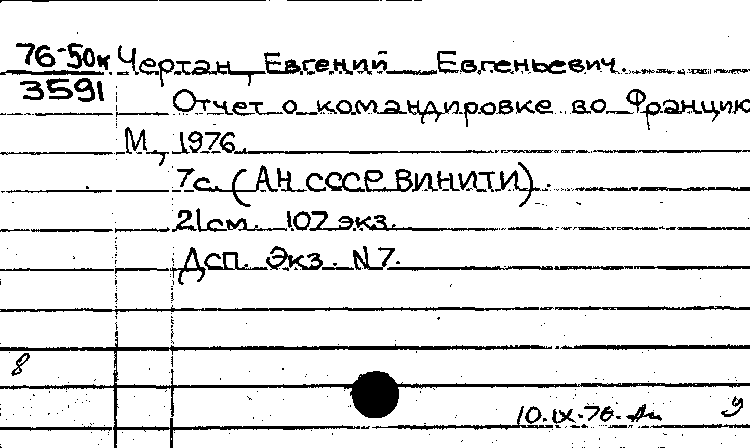 76-50к Чертан, Евгений Евгеньевич.
3591
Отчет о командировке во Францию
М., 1976.
7с. (АН СССР ВИНИТИ).
21см. 107 экз.
Дсп. Экз. N7.
8
10.IX.76.
У